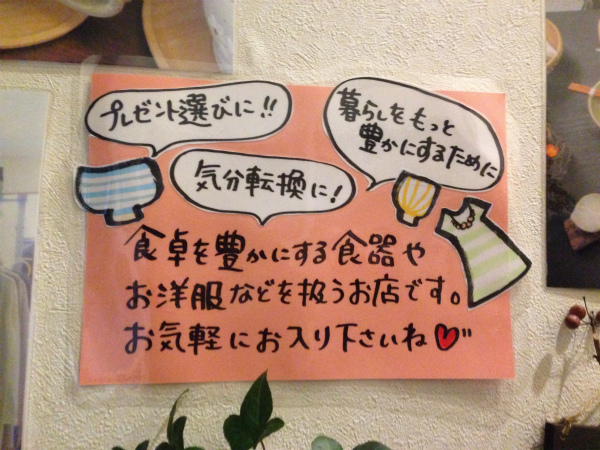 プレゼント選びに!!
暮らしをもっと
豊かにするために
気分転換に!
食卓を豊かにする食器や
お洋服などを扱うお店です。
お気軽にお入り下さいね♥